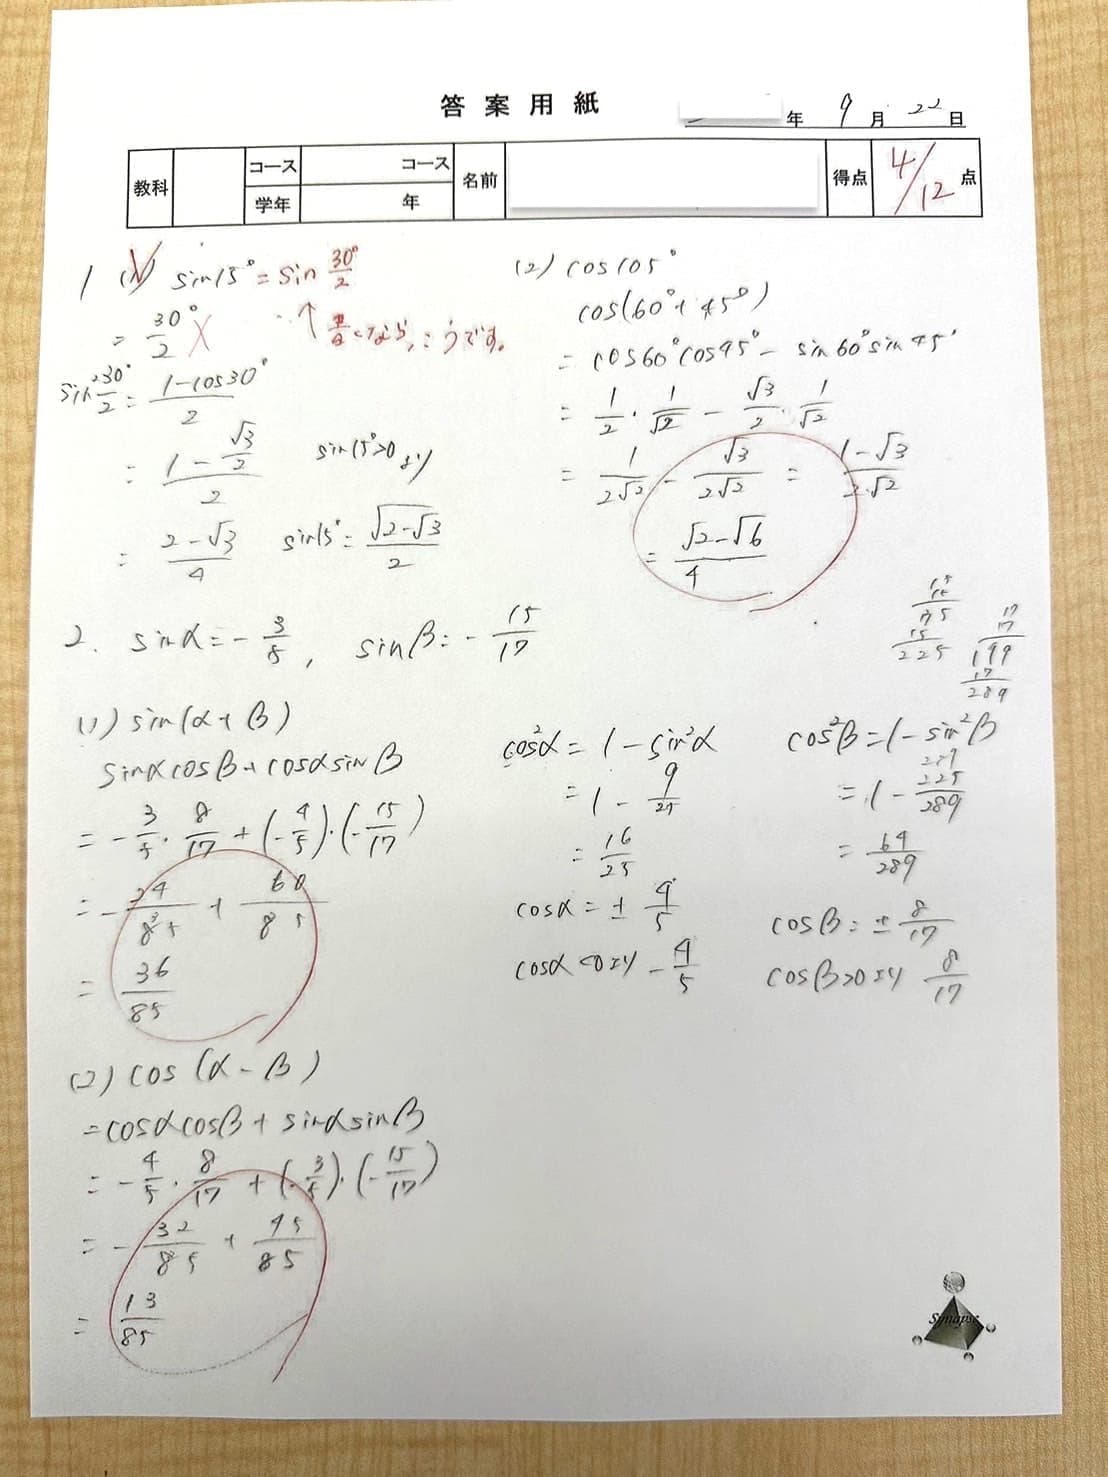 答案用紙
年 9月 22日
教科 コース コース 名前 得点 4/12 点
学年 年
1 (1) sin15° = sin 30°/2
= 30°/2 ×
↑ 書くなら、こうです。
sin² 30°/2 = (1-cos30°)/2
= (1 - √3/2)/2
sin15°>0より
= (2-√3)/4
sin15° = √(2-√3)/2
(2) cos105°
cos(60°+45°)
= cos60°cos45° - sin60°sin45°
= 1/2・1/√2 - √3/2・1/√2
= 1/2√2 - √3/2√2 = (1-√3)/2√2
= (√2-√6)/4
2. sinα = -3/5, sinβ = -15/17
15
15
75
15
225
17
17
199
17
289
(1) sin(α+β)
sinαcosβ+cosαsinβ
= -3/5・8/17 + (-4/5)・(-15/17)
= -24/85 + 60/85
= 36/85
cos²α = 1 - sin²α
= 1 - 9/25
= 16/25
cosα = ± 4/5
cosα<0より -4/5
cos²β = 1 - sin²β
289
= 1 - 225/289
= 64/289
cosβ = ± 8/17
cosβ>0より 8/17
(2) cos(α-β)
= cosαcosβ + sinαsinβ
= -4/5・8/17 + (-3/5)・(-15/17)
= -32/85 + 45/85
= 13/85
Synapse